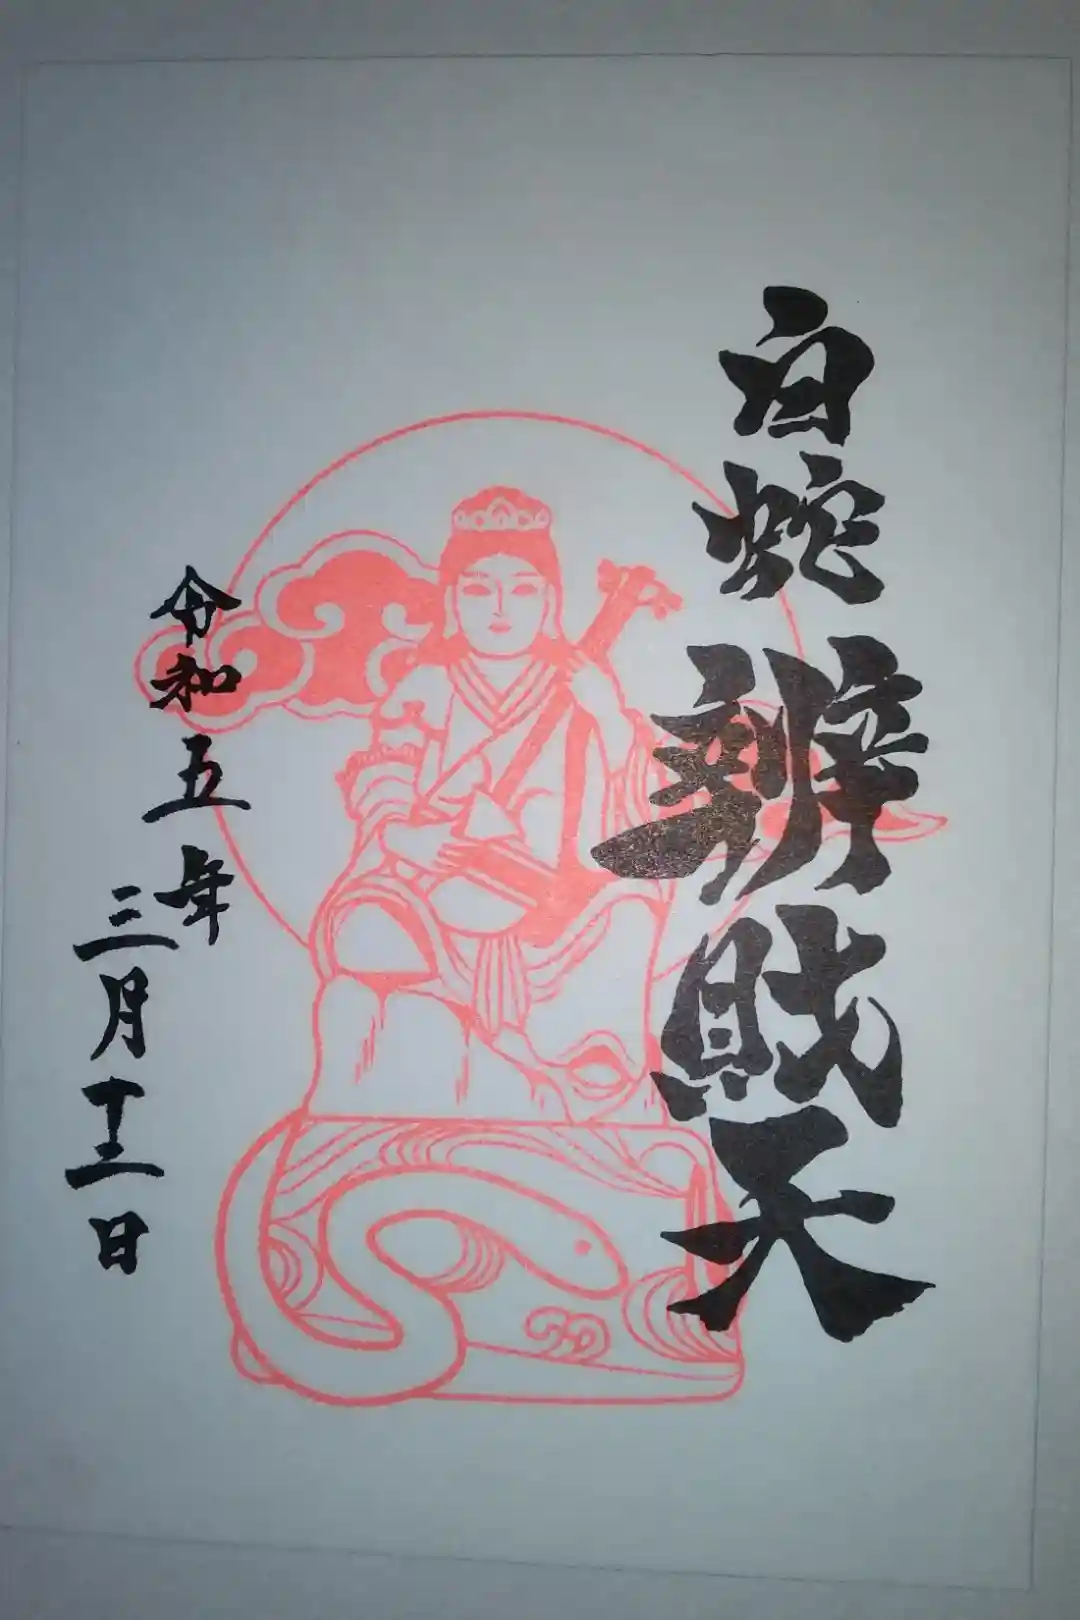 白蛇辨財天
令和五年
三月十三日